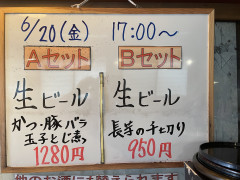 6/20(金) 17:00〜
Aセット
生ビール
かつ・豚バラ
玉子とじ煮
1280円
Bセット
生ビール
長芋の千切り
950円
他のお酒に替えられます